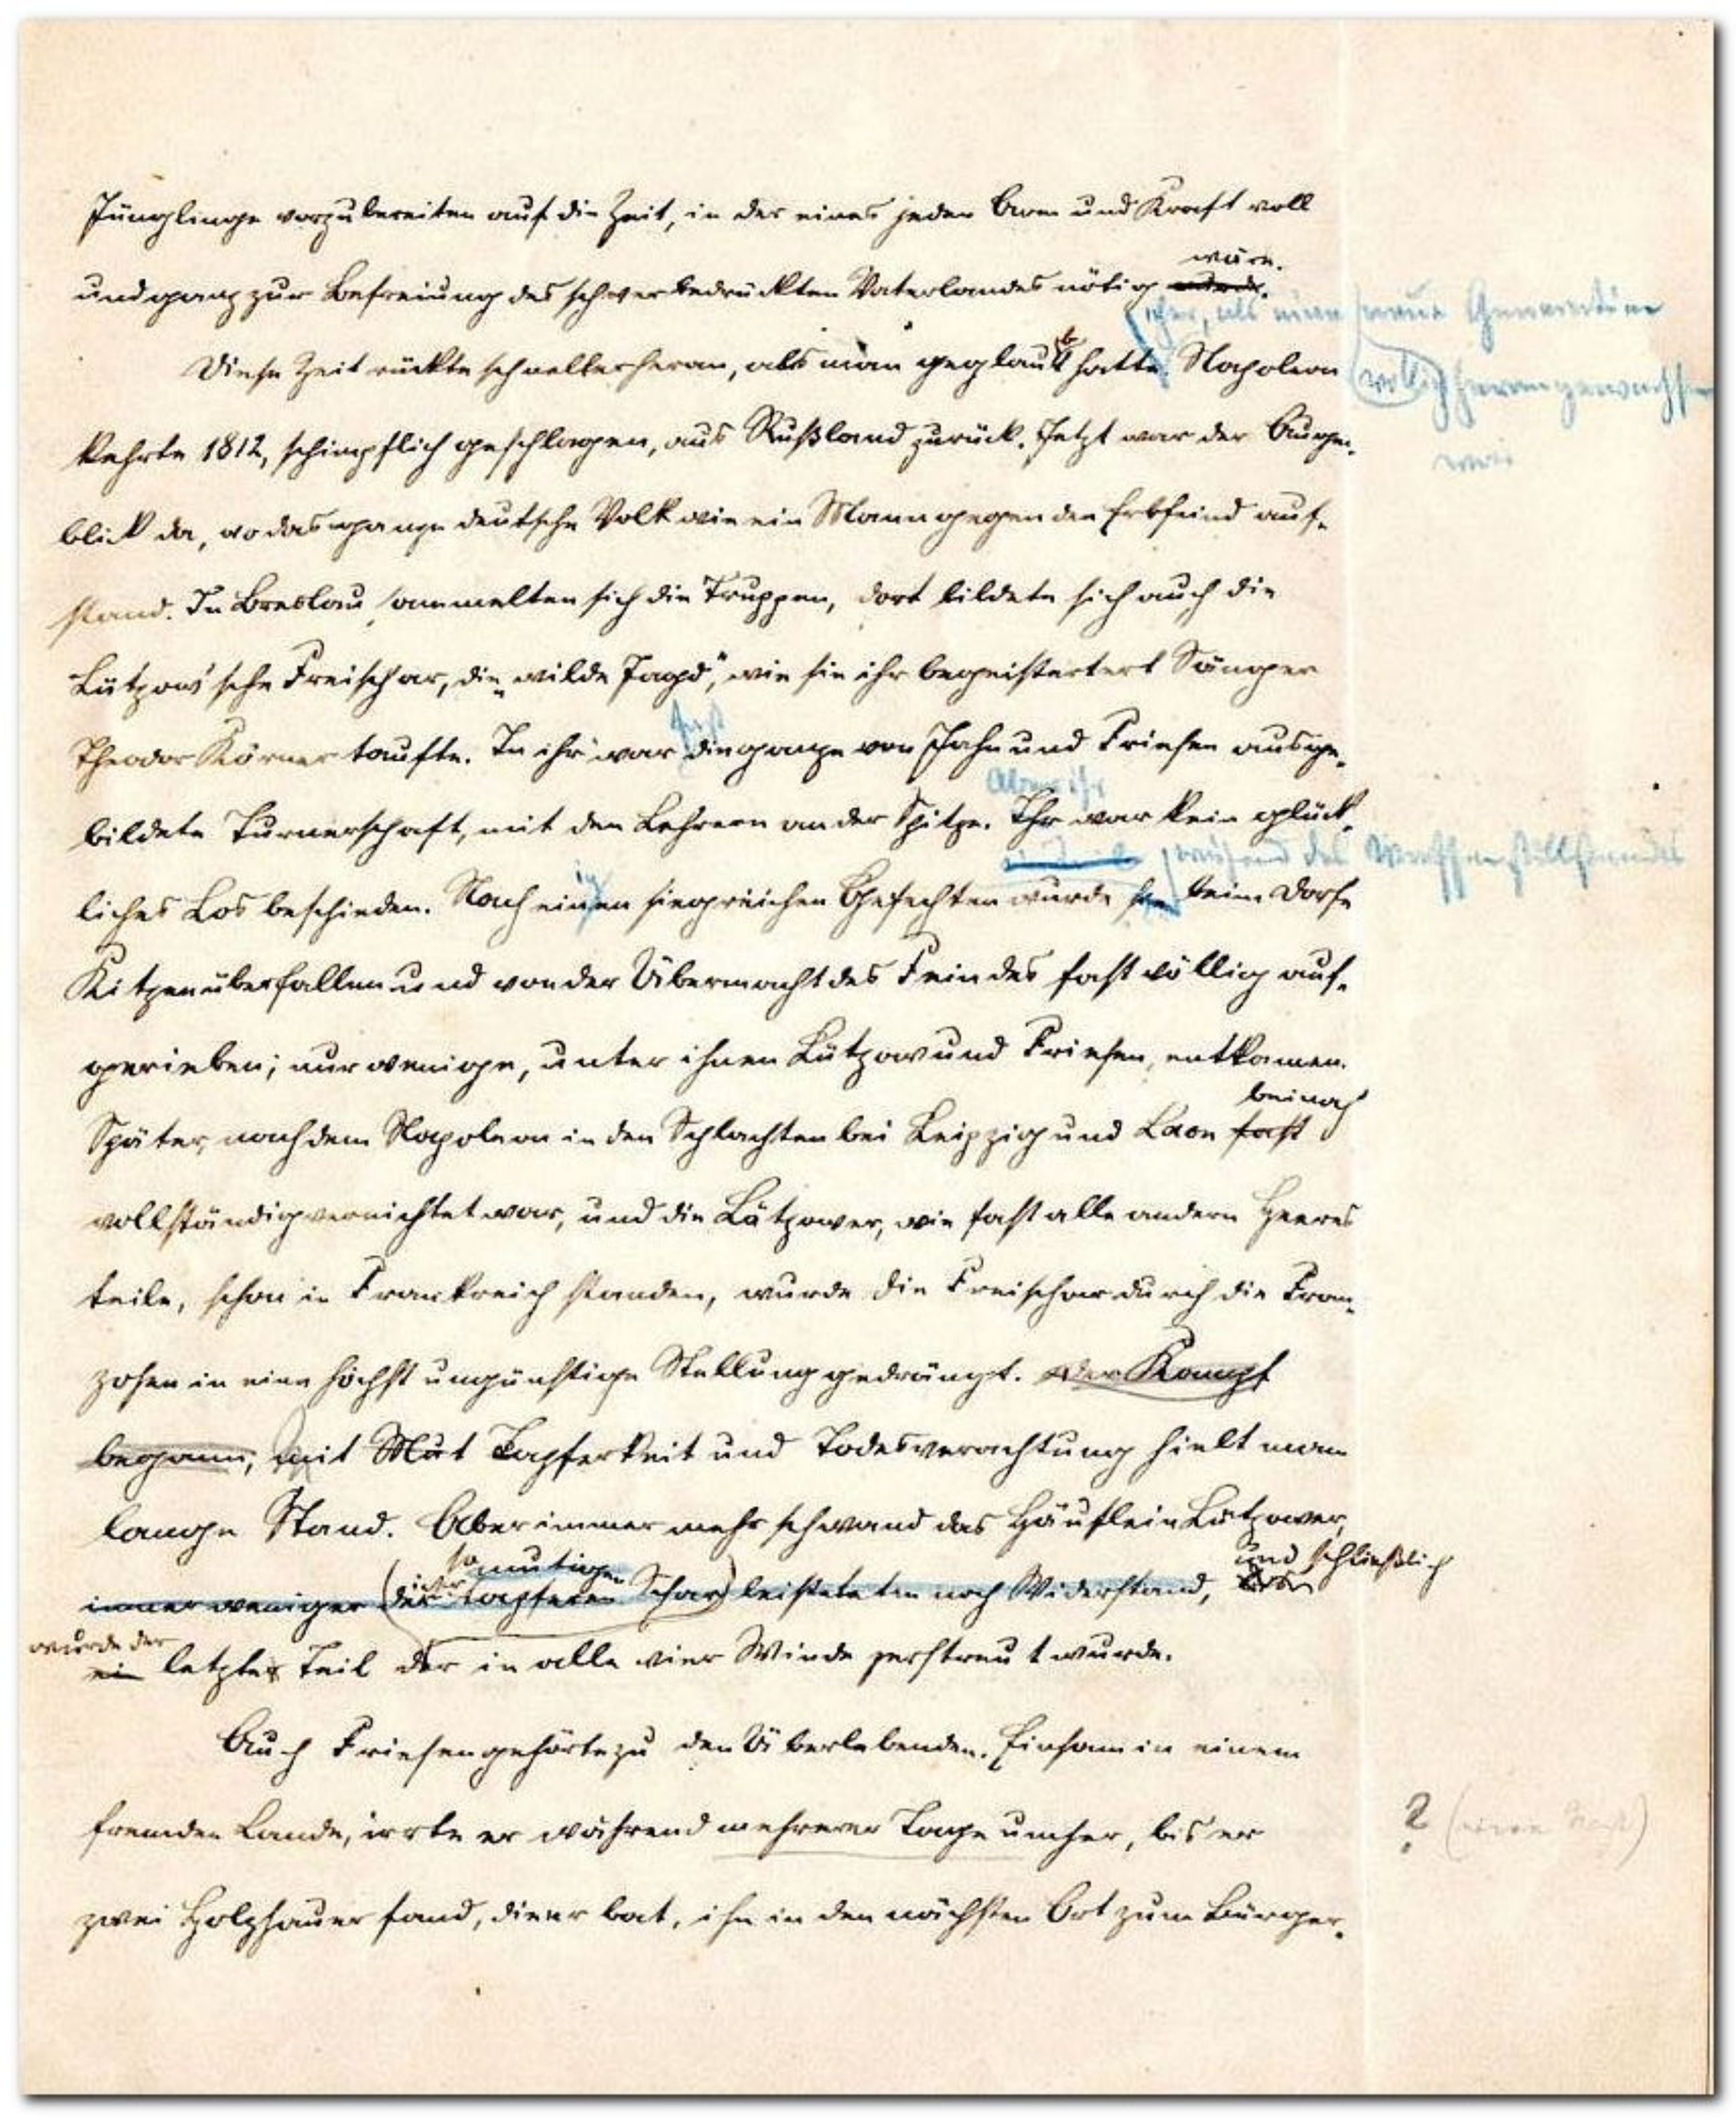 Jünglinge vorzubereiten auf die Zeit, in der eines jeden Arm und Kraft voll
und ganz zur Befreiung des schwerbedrückten Vaterlandes nötig wurde.
wäre.
eher, als eine neue Generation
Diese Zeit rückte schneller heran, als man geglaubt hatte. Napoleon
völlig herangewachsen
war
kehrte 1812, schimpflich geschlagen, aus Rußland zurück. Jetzt war der Augen-
blick da, wo das ganze deutsche Volk wie ein Mann gegen den Erbfeind auf-
stand. In Breslau sammelten sich die Truppen, dort bildete sich auch die
Lützow'sche Freischar, die „wilde Jagd", wie sie ihr begeisterter Sänger
Theodor Körner taufte. In ihr war die ganze von Jahn und Friesen ausge-
fast
Aber ihr
bildete Turnerschaft, mit den Lehrern an der Spitze. Ihr war kein glück-
während des Waffenstillstandes
liches Los beschieden. Nach einigen siegreichen Gefechten wurde sie beim Dorfe
Kitzen überfallen und von der Übermacht des Feindes fast völlig auf-
gerieben; nur wenige, unter ihnen Lützow und Friesen, entkamen.
beinah
Später, nachdem Napoleon in den Schlachten bei Leipzig und Laon fast
vollständig vernichtet war, und die Lützower, wie fast alle andern Heeres
teile, schon in Frankreich standen, wurde die Freischar durch die Fran-
zosen in eine höchst ungünstige Stellung gedrängt. Der Kampf
begann, mit Mut Tapferkeit und Todesverachtung hielt man
lange Stand. Aber immer mehr schwand das Häuflein Lützower,
so mutigen
und schließlich
immer weniger (der tapferen Schar) leisteten noch Widerstand,
wurde der
ein letzter Teil der in alle vier Winde zerstreut wurde.
Auch Friesen gehörte zu den Überlebenden. Einsam in einem
fremden Lande, irrte er während mehrerer Tage umher, bis er
?
zwei Holzhauer fand, die er bat, ihn in den nächsten Ort zum Bürger-